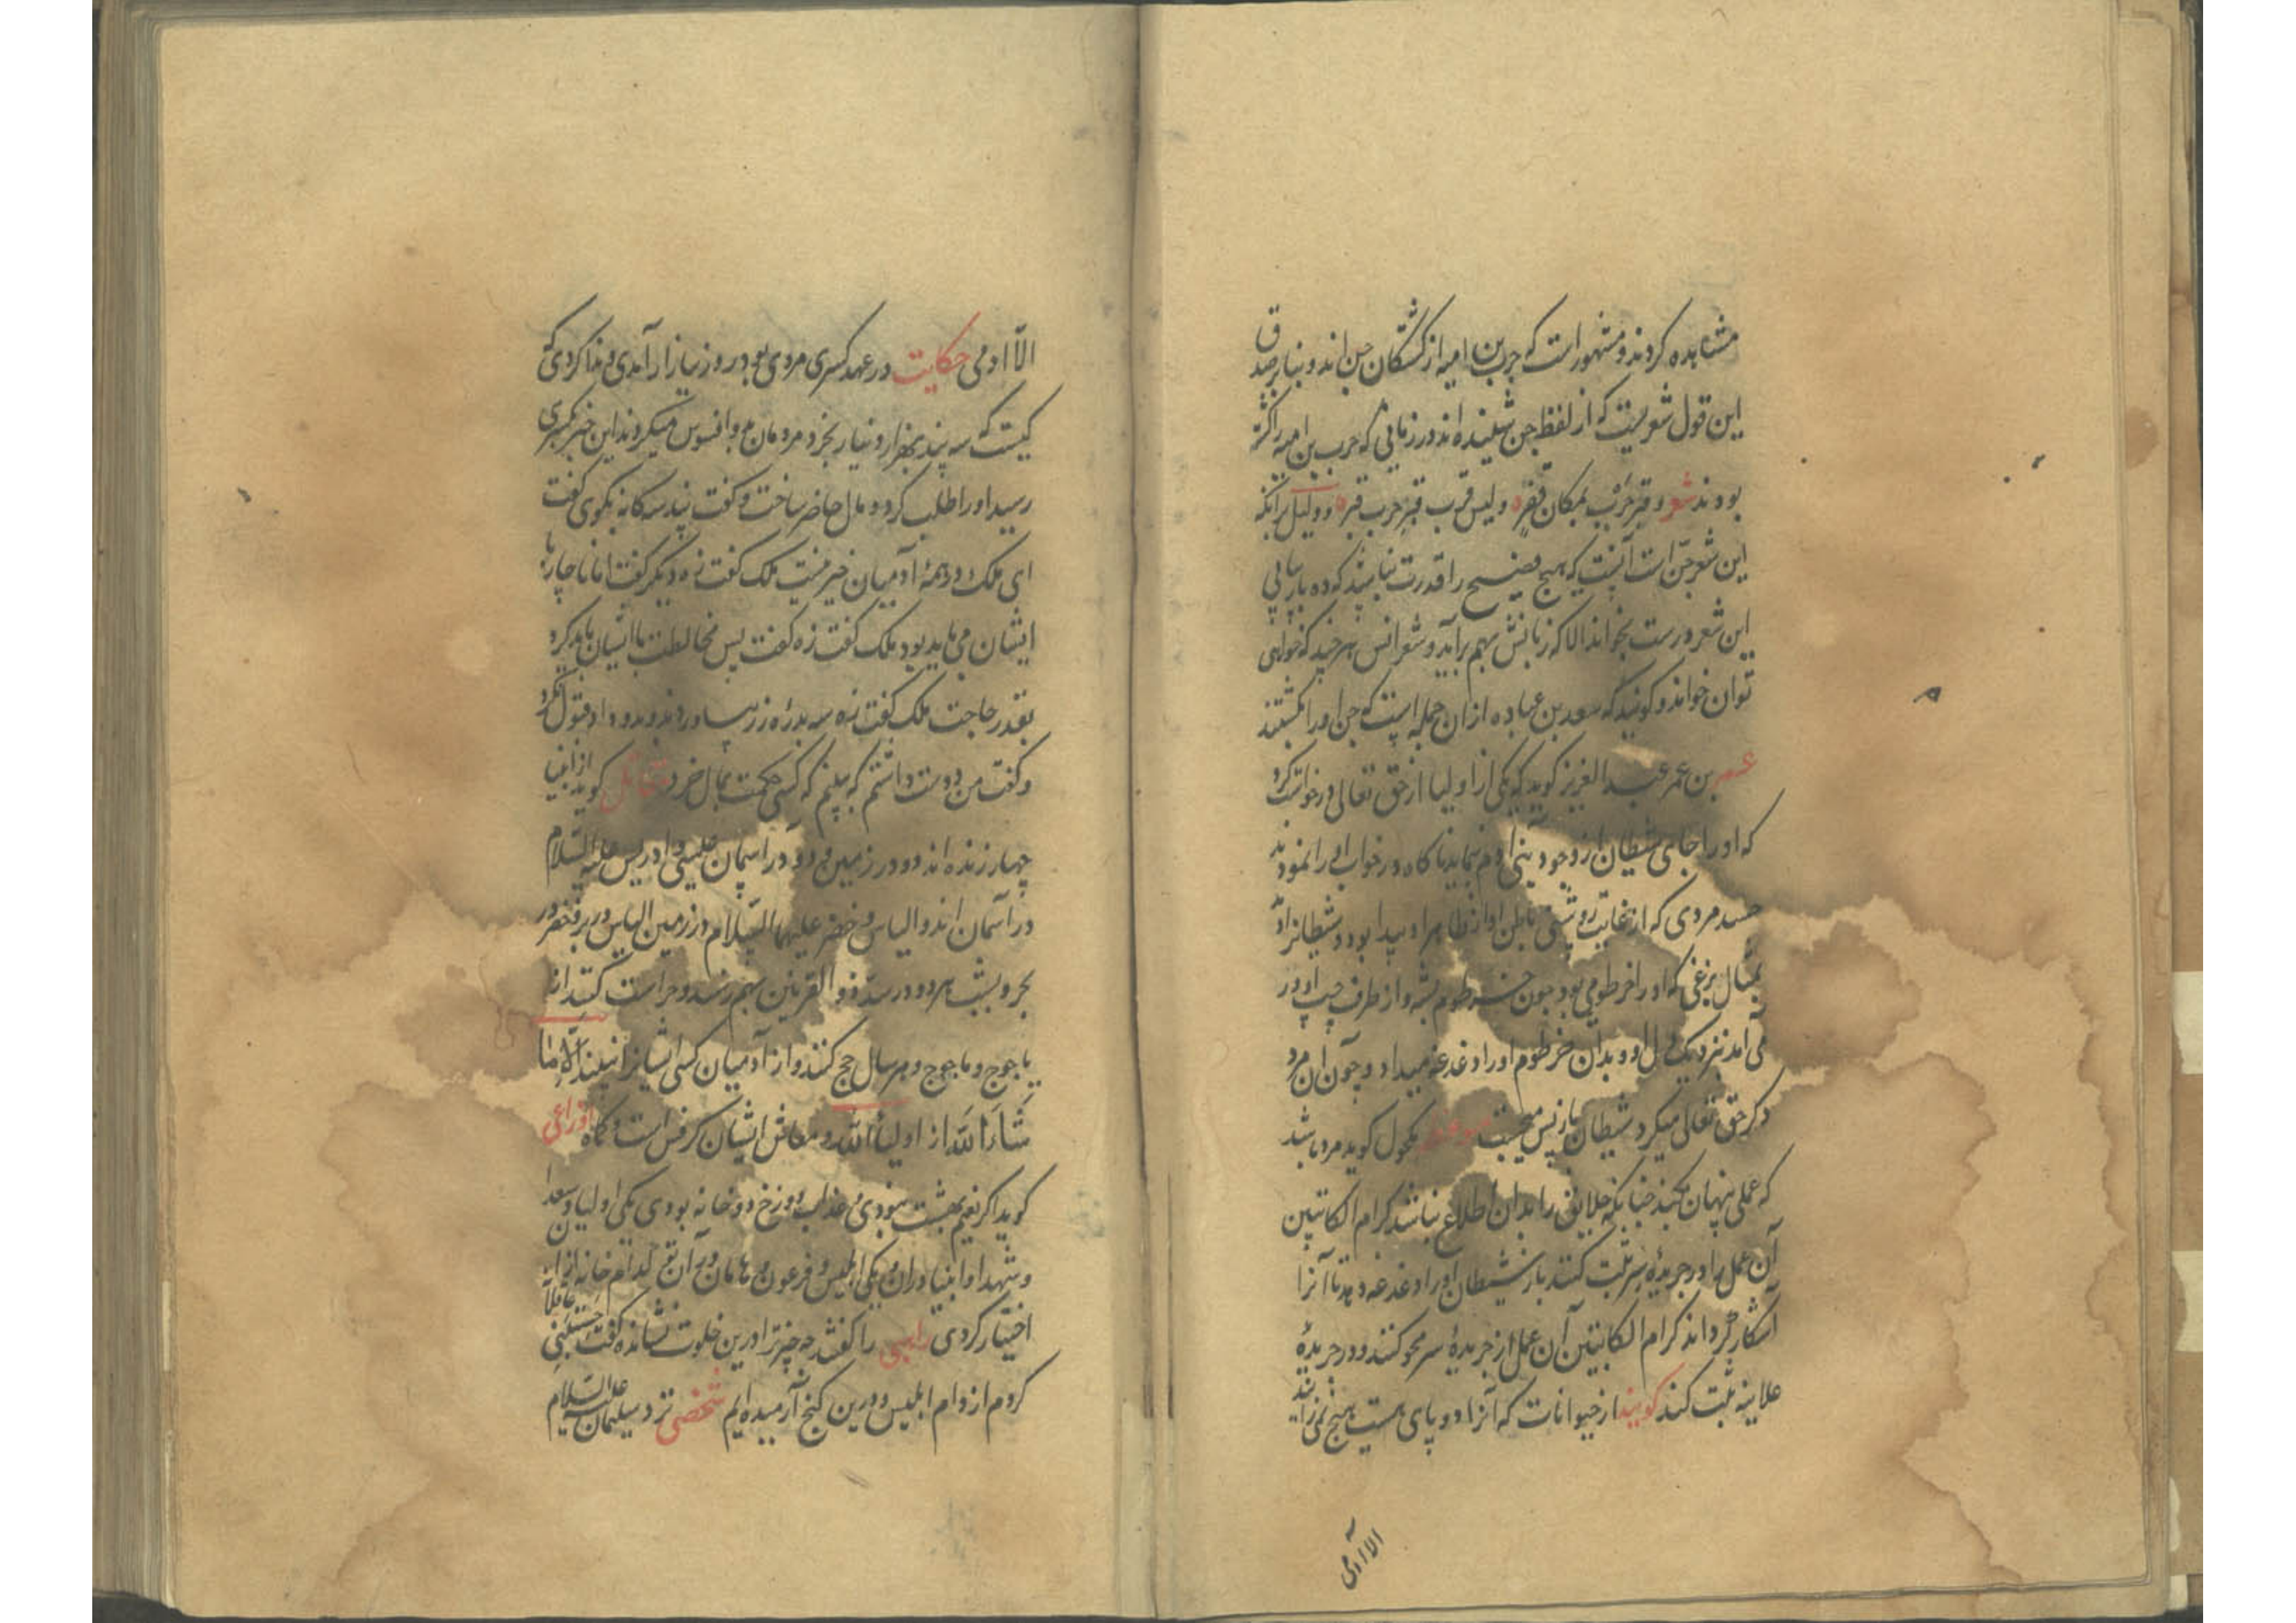 مشاهده کردند و مشهور است که حرب بن امیه از کشتگان جن اند و بنابر صدق
این قول شعریست که از لفظ جن شنیده اند در زمانی که حرب بن امیه را کشته
بودند شعر و قبر حرب بمکان قفر و لیس قرب قبر حرب قبر و دلیل برانکه
این شعر جن است آنست که هیچ فصیح را قدرت نباشد که ده بار پیاپی
این شعر درست بخواند الا که زبانش بهم برآید و شعر انس هر چند که خواهی
توان خواند و کویند که سعد بن عباده از ان جمله است که جن او را بکشتند
عمر بن عبد العزیز کوید که یکی از اولیا از حق تعالی درخواست کرد
که او را جای شیطان از وجود بنی آدم بنماید ناکاه در خواب او را نمودند
جسد مردی که از غایت روشنی باطن او از ظاهر او پیدا بود و شیطانرا دید
بمثال بزغی که او را خرطومی بود چون خرطوم پشه و از طرف چپ او در
می آمد نزدیک دل او و بدان خرطوم او را دغدغه میداد و چون ان مرد
ذکر حق تعالی میکرد شیطان باز پس میجست مکحول کوید مرد باشد
که عملی پنهان بکند چنانکه خلایق را بدان اطلاع نباشد کرام الکاتبین
آن عمل را در جریدهٔ سر ثبت کنند باز شیطان او را دغدغه دهد تا آنرا
آشکار کرداند کرام الکاتبین آن عمل از جریدهٔ سر محو کنند و در جریدهٔ
علانیه ثبت کنند کویند از حیوانات که آنرا دو پای هست هیچ نمی زاید
الا آدمی
الا ادمی حکایت در عهد کسری مردی بود هر روز ببازار آمدی و ندا کردی که
کیست که سه پند بهزار دینار بخرد مردمان برو افسوس میکردند این خبر بکسری
رسید او را طلب کرد و مال حاضر ساخت و کفت پند سه کانه بکوی کفت
ای ملک در همهٔ آدمیان خیر نیست ملک کفت زه دیکر کفت اما ناچار با
ایشان می باید بود ملک کفت زه کفت پس مخالطت با ایشان باید کرد
بقدر حاجت ملک کفت زه سه بدرهٔ زر بیاوردند و بدو داد قبول نکرد
و کفت من دوست داشتم که ببینم که کسی حکمت بمال خرد مقاتل کوید از انبیا
چهار زنده اند دو در زمین و دو در آسمان عیسی و ادریس علیه السلام
در آسمان اند و الیاس و خضر علیهما السلام در زمین الیاس در بر و خضر در
بحر و بشب هر دو در سد ذو القرنین بهم رسند و حراست کنند از
یاجوج و ماجوج و هر سال حج کنند و از آدمیان کسی ایشانرا نبیند الا ما
شاء الله از اولیاء الله و معاش ایشان کرفس است و کماه اوزاعی
کوید اکر نعیم بهشت نبودی و عذاب دوزخ دو خانه بودی یکی اولیا و سعدا
و شهدا و انبیا دران و یکی ابلیس و فرعون و هامان در آن تو کدام خانه از ان
اختیار کردی راهبی را کفتند چه چیز ترا درین خلوت نشانده کفت
کردم از دام ابلیس و درین کنج آرمیده ایم شخصی نزد سلیمان علیه السلام